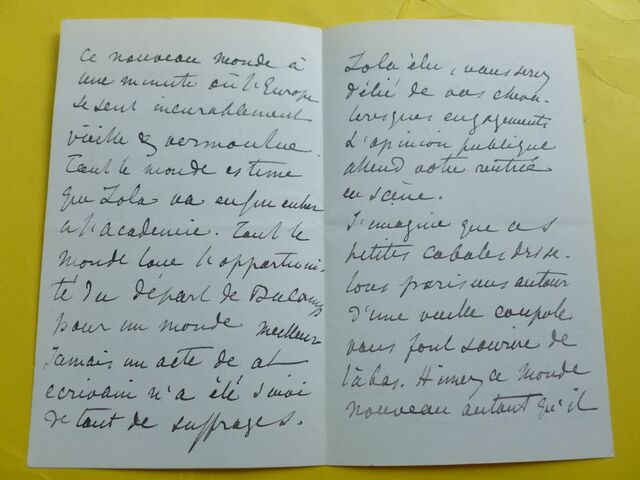 ce nouveau monde à
une minute où l'Europe
se sent incurablement
vieille & vermoulue.
Tout le monde estime
que Zola va enfin entrer
à l'academie. Tout le
monde loue l'opportuni-
té du départ de Ducamp
pour un monde meilleur
Jamais un acte de cet
ecrivain n'a été suivi
de tant de suffrages.
Zola élu, vous serez
délié de vos cheva-
leresques engagements
L'opinion publique
attend votre rentrée
en scène.
J'imagine que ces
petites cabales drise-
lous parisiens autour
d'une vieille coupole
vous font sourire de
là bas. Aimez ce monde
nouveau autant qu'il